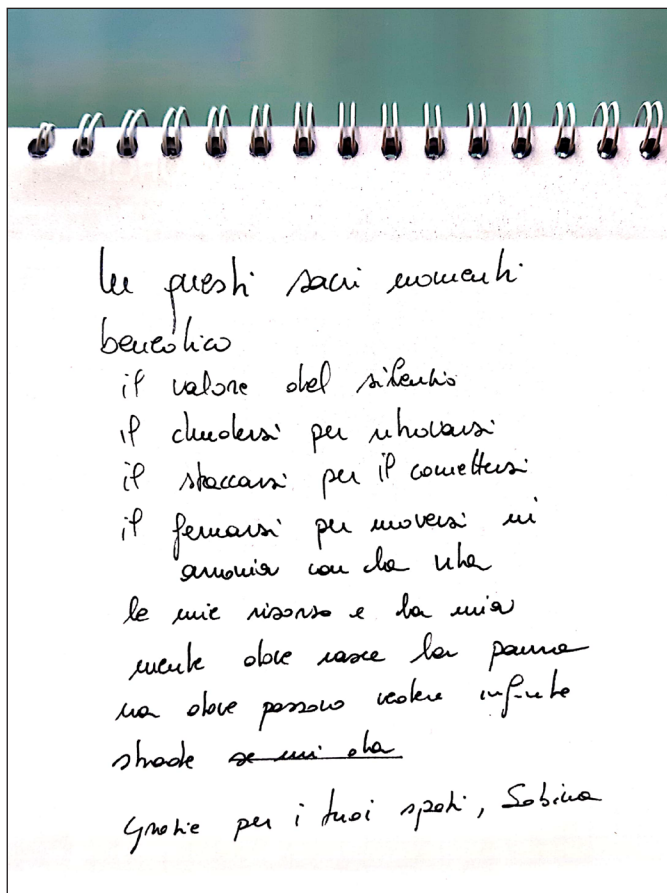 In questi sacri momenti
benedico
il valore del silenzio
il chiudersi per ritrovarsi
il staccarsi per il connettersi
il fermarsi per moversi in
armonia con la vita
le mie risorse e la mia
mente dove nasce la paura
ma dove possono vedere infinite
strade se mi da
Grazie per i tuoi spazi, Sabina